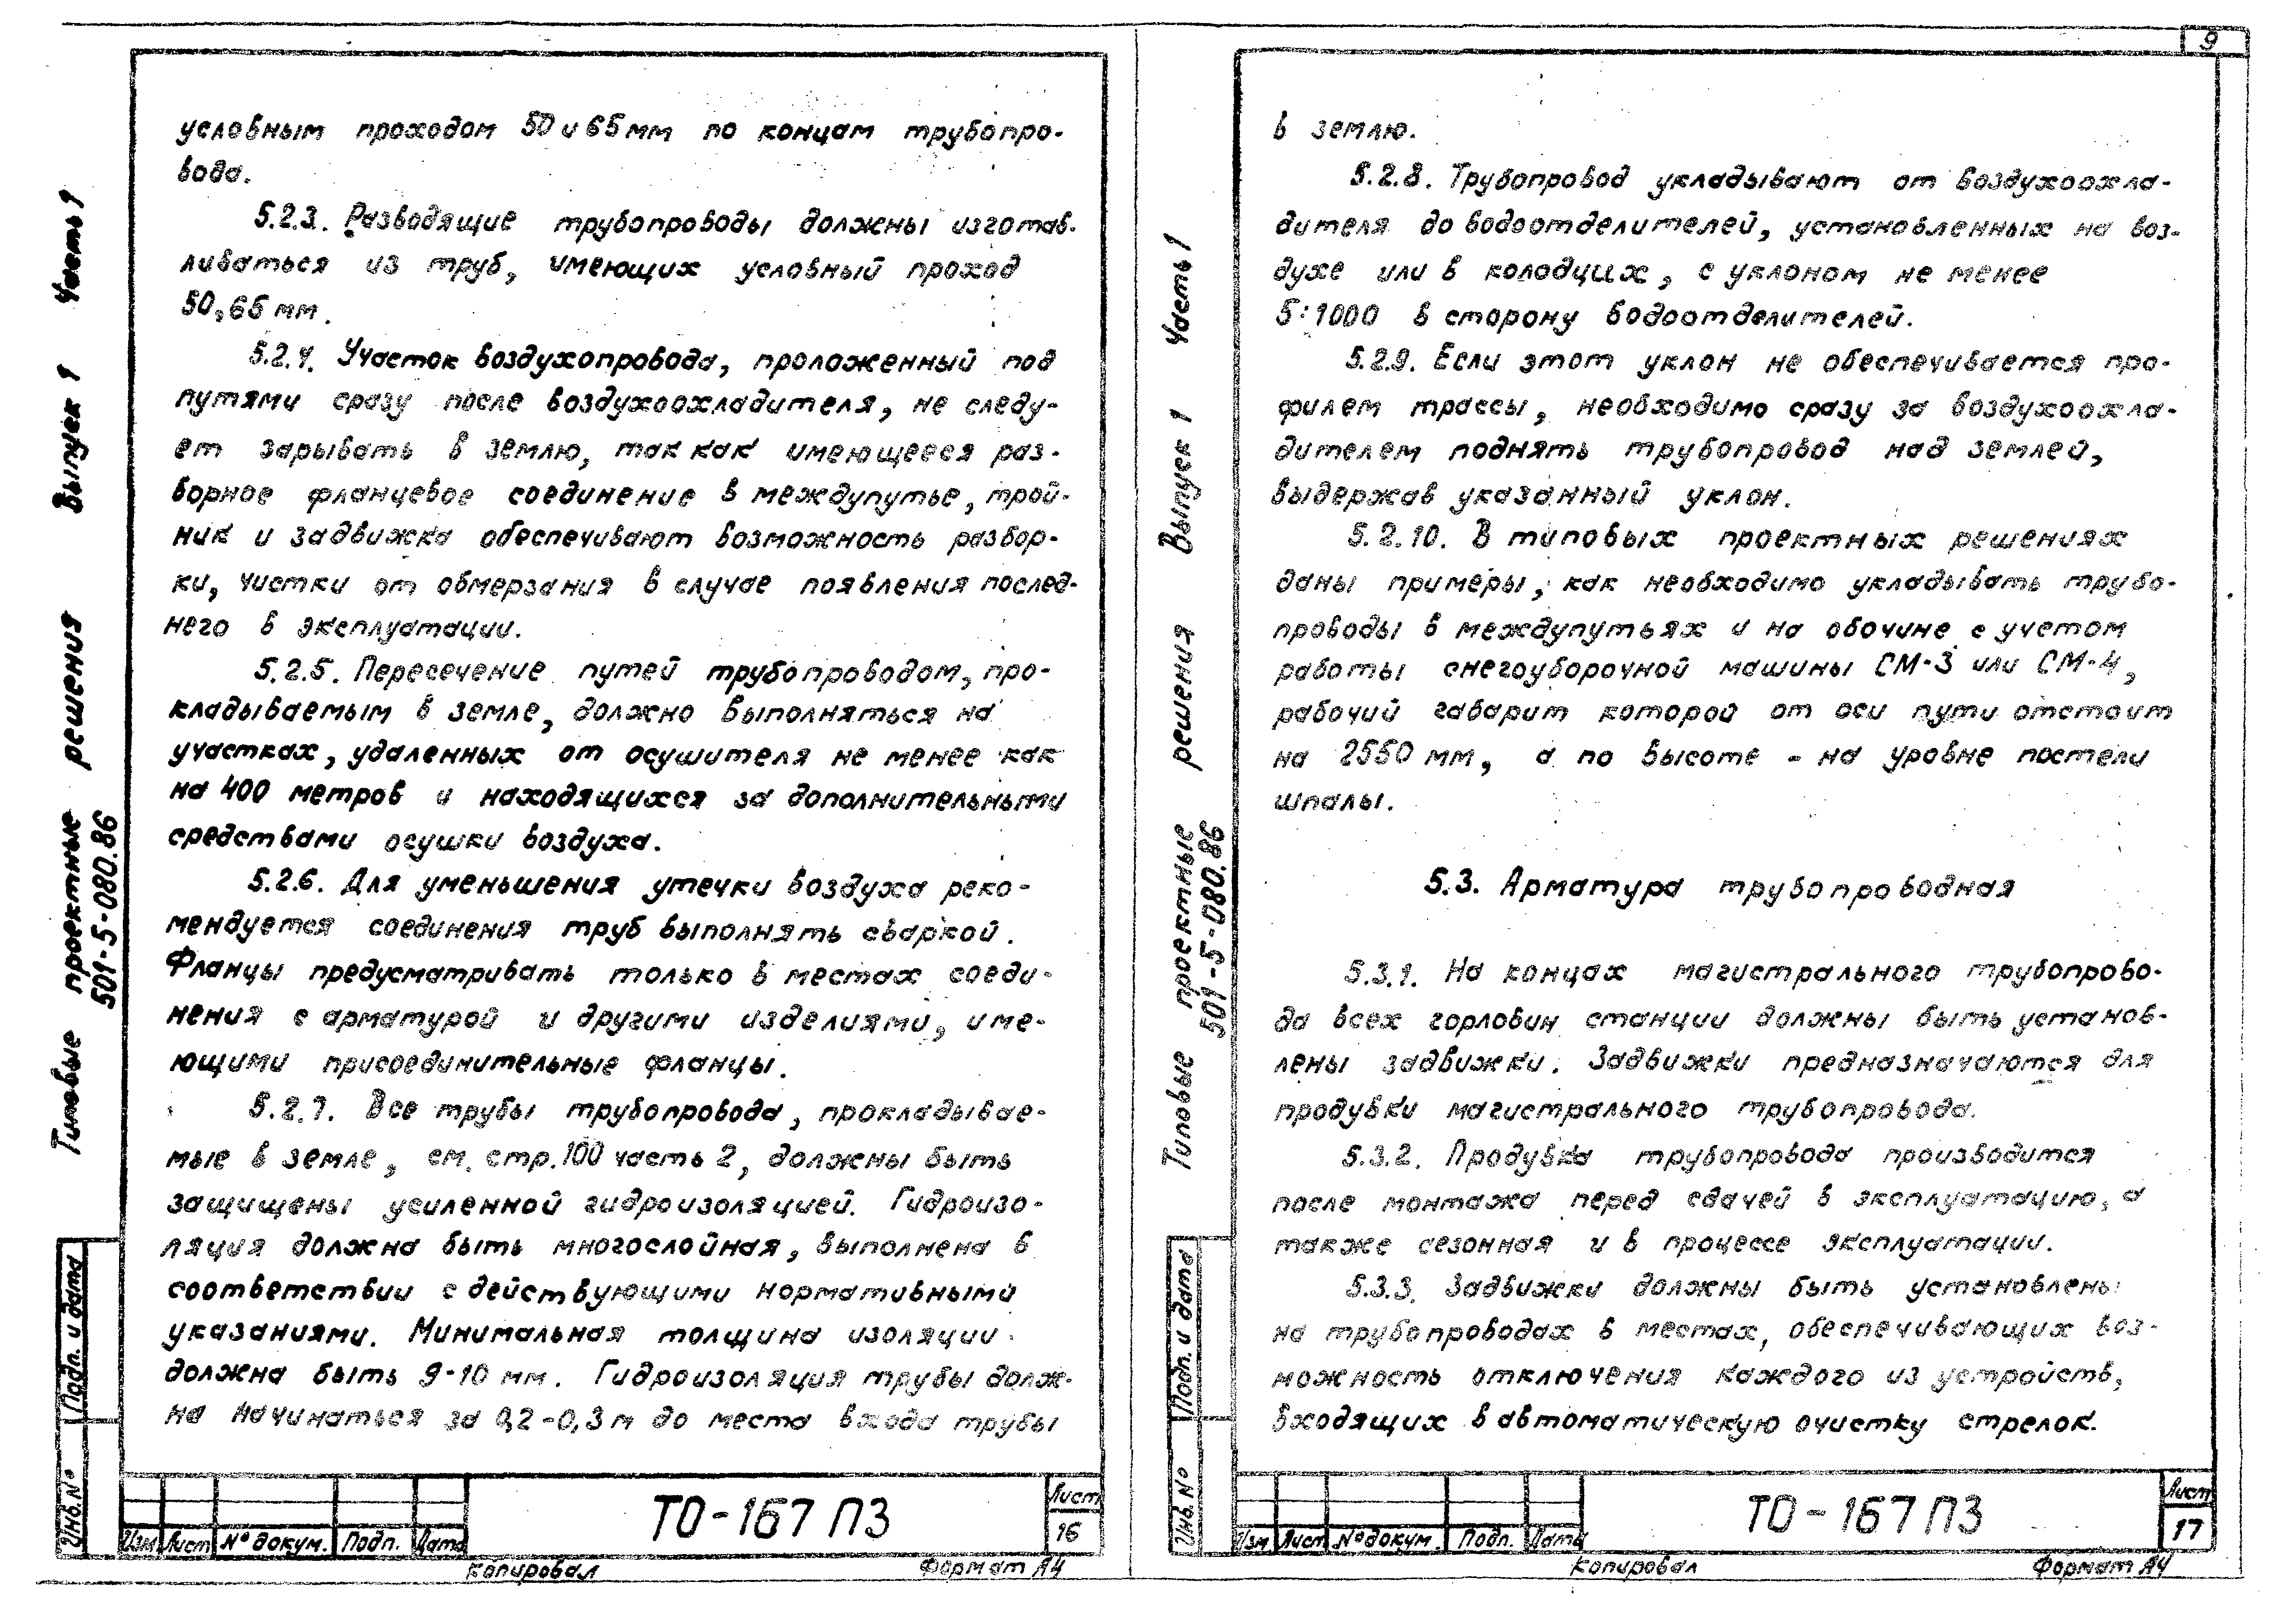 условным проходом 50 и 65 мм по концам трубопро-
вода.
5.2.3. Разводящие трубопроводы должны изготав-
ливаться из труб, имеющих условный проход
50, 65 мм.
5.2.4. Участок воздухопровода, проложенный под
путями сразу после воздухоохладителя, не следу-
ет зарывать в землю, так как имеющееся раз-
борное фланцевое соединение в междупутье, трой-
ник и задвижка обеспечивают возможность разбор-
ки, чистки от обмерзания в случае появления послед-
него в эксплуатации.
5.2.5. Пересечение путей трубопроводом, про-
кладываемым в земле, должно выполняться на
участках, удаленных от осушителя не менее как
на 400 метров и находящихся за дополнительными
средствами осушки воздуха.
5.2.6. Для уменьшения утечки воздуха реко-
мендуется соединения труб выполнять сваркой.
Фланцы предусматривать только в местах соеди-
нения с арматурой и другими изделиями, име-
ющими присоединительные фланцы.
5.2.7. Все трубы трубопровода, прокладывае-
мые в земле, см. стр. 100 часть 2, должны быть
защищены усиленной гидроизоляцией. Гидроизо-
ляция должна быть многослойная, выполнена в
соответствии с действующими нормативными
указаниями. Минимальная толщина изоляции
должна быть 9-10 мм. Гидроизоляция трубы долж-
на начинаться за 0,2-0,3 м до места входа трубы
Типовые проектные решения Выпуск 1 Часть 1
501-5-080.86
Подп. и дата
Инв. №
Изм Лист № докум. Подп. Дата
ТО-167 ПЗ
Лист
16
Копировал
Формат А4
9
в землю.
5.2.8. Трубопровод укладывают от воздухоохла-
дителя до водоотделителей, установленных на воз-
духе или в колодцих, с уклоном не менее
5:1000 в сторону водоотделителей.
5.2.9. Если этот уклон не обеспечивается про-
филем трассы, необходимо сразу за воздухоохла-
дителем поднять трубопровод над землей,
выдержав указанный уклон.
5.2.10. В типовых проектных решениях
даны примеры, как необходимо укладывать трубо-
проводы в междупутьях и на обочине с учетом
работы снегоуборочной машины СМ-3 или СМ-4,
рабочий габарит которой от оси пути отстоит
на 2550 мм, а по высоте - на уровне постели
шпалы.
5.3. Арматура трубопроводная
5.3.1. На концах магистрального трубопрово-
да всех горловин станции должны быть установ-
лены задвижки. Задвижки предназначаются для
продувки магистрального трубопровода.
5.3.2. Продувка трубопровода производится
после монтажа перед сдачей в эксплуатацию, а
также сезонная и в процессе эксплуатации.
5.3.3. Задвижки должны быть установлены
на трубопроводах в местах, обеспечивающих воз-
можность отключения каждого из устройств,
входящих в автоматическую очистку стрелок.
Типовые проектные решения Выпуск 1 Часть 1
501-5-080.86
Подп. и дата
Инв. №
Изм. Лист № докум. Подп. Дата
ТО-167 ПЗ
Лист
17
Копировал
Формат А4